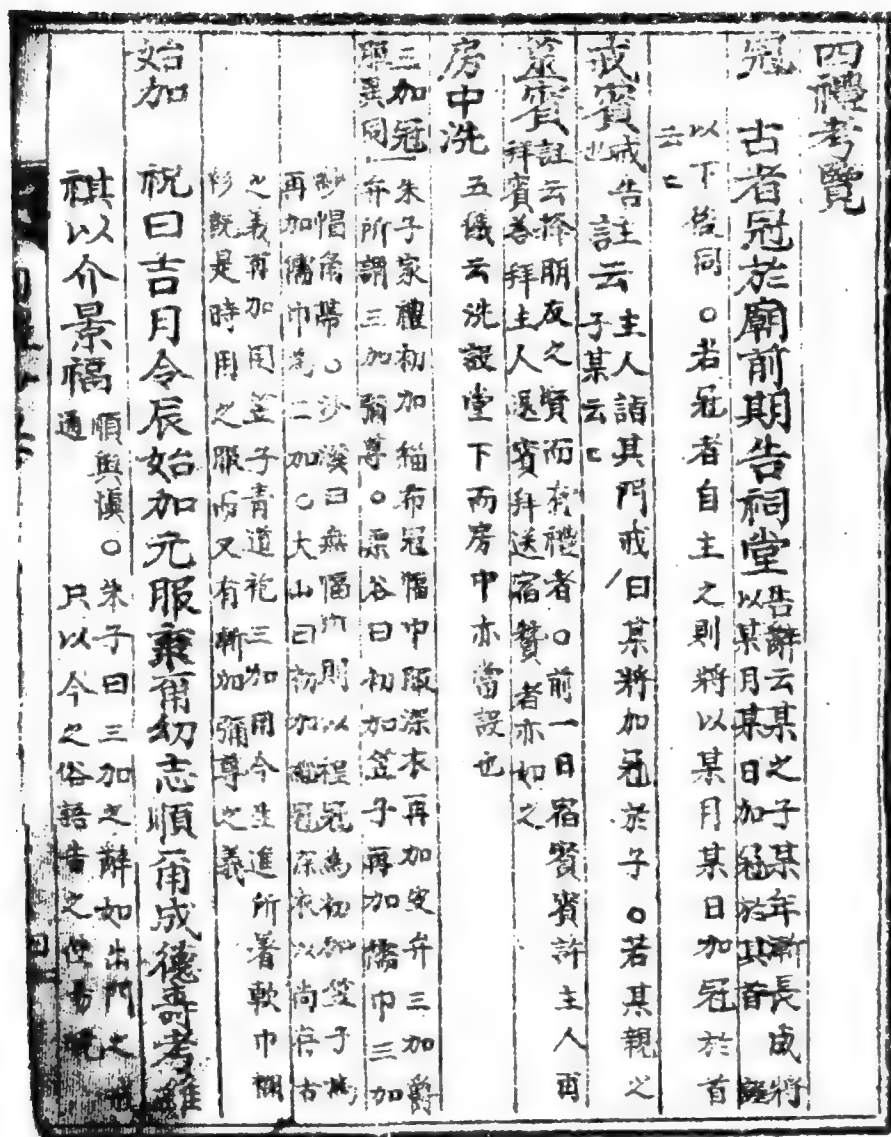 四禮考覽
冠 古者冠於廟前期告祠堂 告辭云某之子某年漸長成將
以某月某日加冠於其首
以下後同○若冠者自主之則將以某月某日加冠於首
云云
戒賓 戒告也 註云 主人詣其門戒曰某將加冠於子○若某親之
子某云云
筮賓 註云擇朋友之賢而有禮者○前一日宿賓賓許主人再
拜賓答拜主人退賓拜送宿贊者亦如之
房中洗 五儀云洗設堂下而房中亦當設也
三加冠
服異同 朱子家禮初加緇布冠幅巾服深衣再加皮弁三加爵
弁所謂三加彌尊○栗谷曰初加笠子再加儒巾三加
紗帽角帶○沙溪曰無幅巾則以程冠爲初加笠子爲
再加儒巾爲二加○大山曰初加緇冠深衣以尚倍古
之義再加用笠子青道袍三加用今生進所着軟巾襴
衫旣是時用之服而又有漸加彌尊之義
始加 祝曰吉月令辰始加元服棄爾幼志順爾成德壽考維
祺以介景福 順與愼
通 ○朱子曰三加之辭如出門之
只以今之俗語告之使易曉